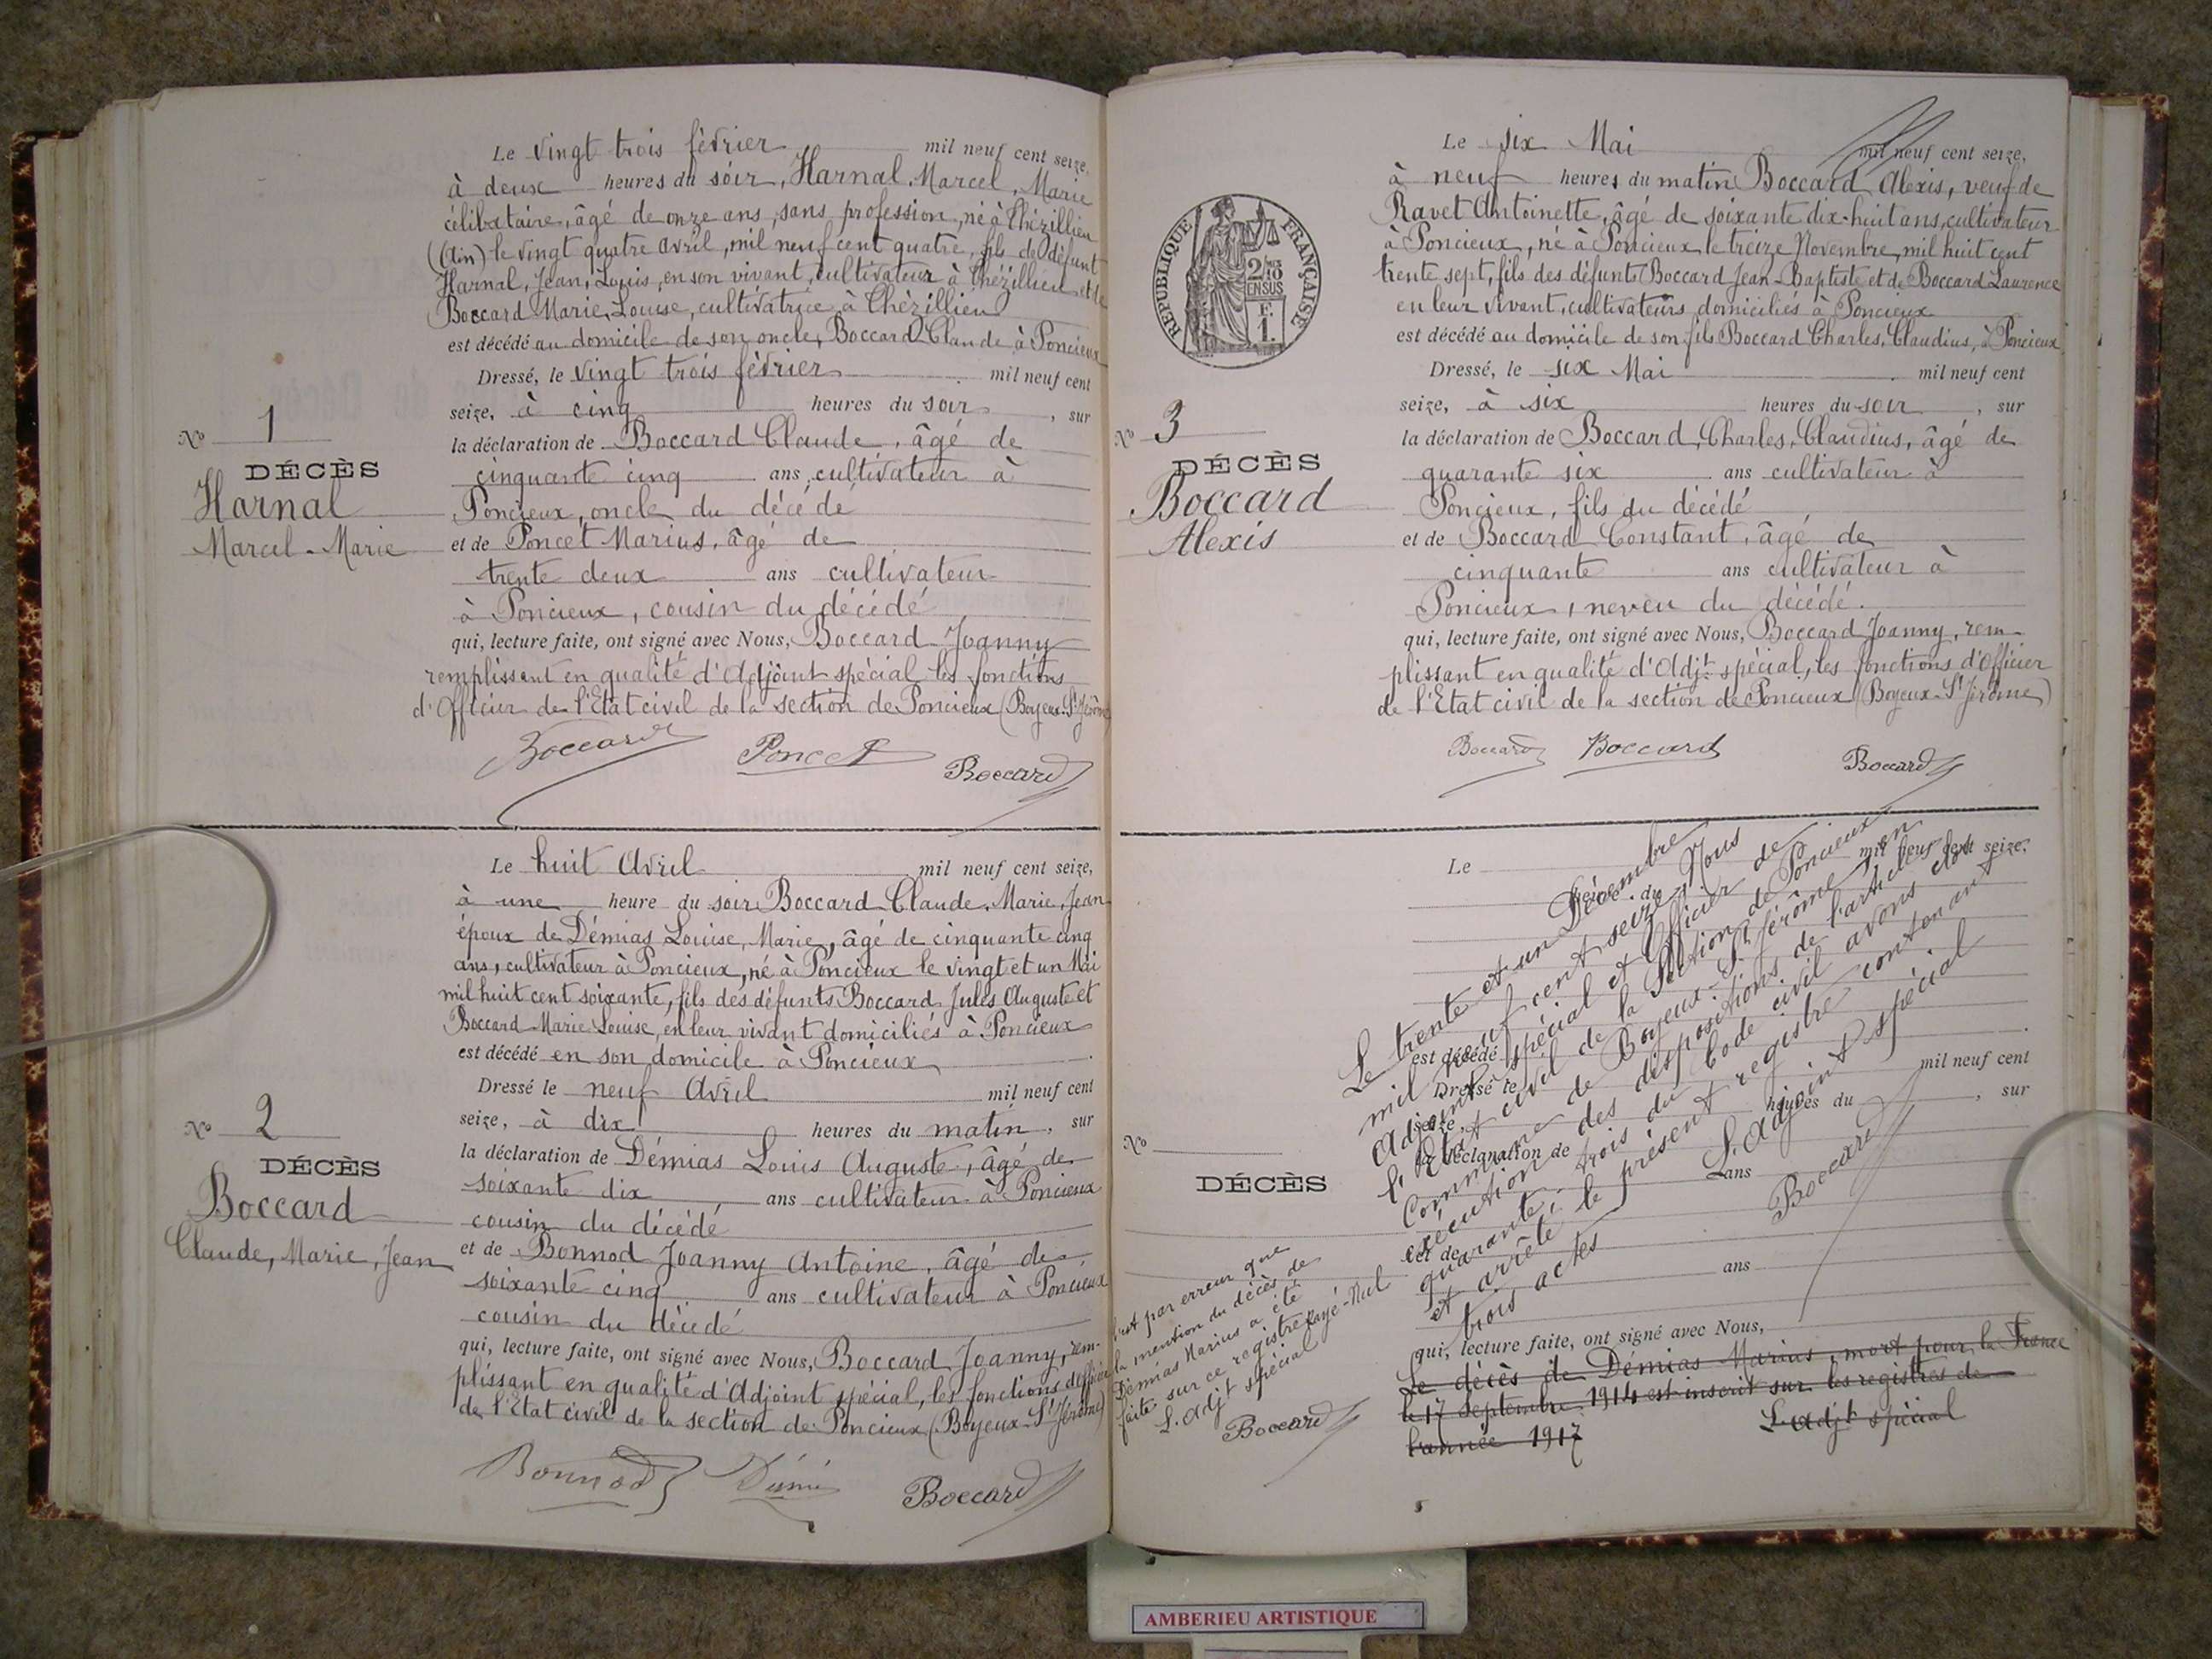 Le vingt trois février mil neuf cent seize,
à deux heures du soir, Harnal, Marcel, Marie
célibataire, âgé de onze ans, sans profession, né à Chézillieu
(Ain) le vingt quatre avril, mil neuf cent quatre, fils de défunt
Harnal, Jean, Louis, en son vivant, cultivateur à Chézillieu et de
Boccard Marie, Louise, cultivatrice à Chézillieu
est décédé au domicile de son oncle, Boccard Claude à Poncieux
Dressé, le vingt trois février mil neuf cent
seize, à cinq heures du soir, sur
la déclaration de Boccard Claude, âgé de
cinquante cinq ans, cultivateur à
Poncieux, oncle du décédé
et de Poncet Marius, âgé de
trente deux ans cultivateur
à Poncieux, cousin du décédé
qui, lecture faite, ont signé avec Nous, Boccard Joanny
remplissant en qualité d'Adjoint spécial les fonctions
d'Officier de l'Etat civil de la section de Poncieux (Boyeux-St Jérôme)
Boccard Poncet Boccard
No 1
DÉCÈS
Harnal
Marcel-Marie
Le huit Avril mil neuf cent seize,
à une heure du soir Boccard Claude, Marie, Jean
époux de Démias Louise, Marie, âgé de cinquante cinq
ans, cultivateur à Poncieux, né à Poncieux le vingt et un Mai
mil huit cent soixante, fils des défunts Boccard Jules Auguste et
Boccard Marie Louise, en leur vivant domiciliés à Poncieux
est décédé en son domicile à Poncieux
Dressé le neuf Avril mil neuf cent
seize, à dix heures du matin, sur
la déclaration de Démias Louis Auguste, âgé de
soixante dix ans cultivateur à Poncieux
cousin du décédé
et de Bonnod Joanny Antoine, âgé de
soixante cinq ans cultivateur à Poncieux
cousin du décédé
qui, lecture faite, ont signé avec Nous, Boccard Joanny, rem-
plissant en qualité d'Adjoint spécial, les fonctions d'officier
de l'Etat civil de la section de Poncieux (Boyeux-St Jérôme)
Bonnod Boccard
No 2
DÉCÈS
Boccard
Claude, Marie, Jean
Le six Mai mil neuf cent seize,
à neuf heures du matin Boccard Alexis, veuf de
Ravet Antoinette, âgé de soixante dix-huit ans, cultivateur
à Poncieux, né à Poncieux le treize Novembre, mil huit cent
trente sept, fils des défunts Boccard Jean-Baptiste et de Boccard Laurence
en leur vivant, cultivateurs domiciliés à Poncieux
est décédé au domicile de son fils Boccard Charles, Claudius, à Poncieux
Dressé, le six Mai mil neuf cent
seize, à six heures du soir, sur
la déclaration de Boccard, Charles, Claudius, âgé de
quarante six ans cultivateur à
Poncieux, fils du décédé
et de Boccard Constant, âgé de
cinquante ans cultivateur à
Poncieux, neveu du décédé.
qui, lecture faite, ont signé avec Nous, Boccard Joanny, rem-
plissant en qualité d'Adjt spécial, les fonctions d'Officier
de l'Etat civil de la section de Poncieux (Boyeux-St Jérôme)
Boccard Boccard Boccard
RÉPUBLIQUE FRANÇAISE
2/10 EN SUS
F.
1.
No 3
DÉCÈS
Boccard
Alexis
Le mil neuf cent seize,
heures du
est décédé
Dressé le mil neuf cent
seize, heures du , sur
la déclaration de
ans
et de
ans
qui, lecture faite, ont signé avec Nous,
No
DÉCÈS
Le trente et un Décembre
mil neuf cent seize, Nous
Adjoint spécial et Officier de
l'Etat civil de la Section de Poncieux
Commune de Boyeux-St Jérôme, en
exécution des dispositions de l'article
quarante-trois du Code civil avons clos
et arrêté le présent registre contenant
trois actes
L'Adjoint spécial
Boccard
C'est par erreur que
la mention du décès de
Démias Marius a été
faite sur ce registre Rayé-Nul
L'adjt spécial
Boccard
Le décès de Démias Marius, mort pour la France
le 17 Septembre 1914 est inscrit sur les registres de
l'année 1917
L'adjt spécial
AMBERIEU ARTISTIQUE